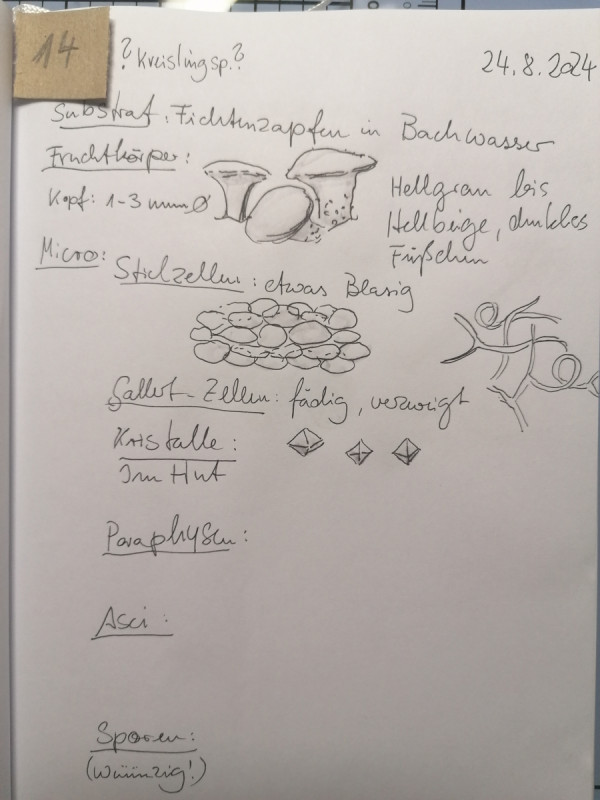 14
? Kreisling sp. ?
24.8.2024
Substrat: Fichtenzapfen in Bachwasser
Fruchtkörper:
Kopf: 1-3 mm Ø
Hellgrau bis
Hellbeige, dunkles
Füßchen
Micro:
Stielzellen: etwas Blasig
Gallert-Zellen: fädig, verzweigt
Kristalle:
Im Hut
Paraphysen:
Asci:
Sporen:
(Wiiinzig!)